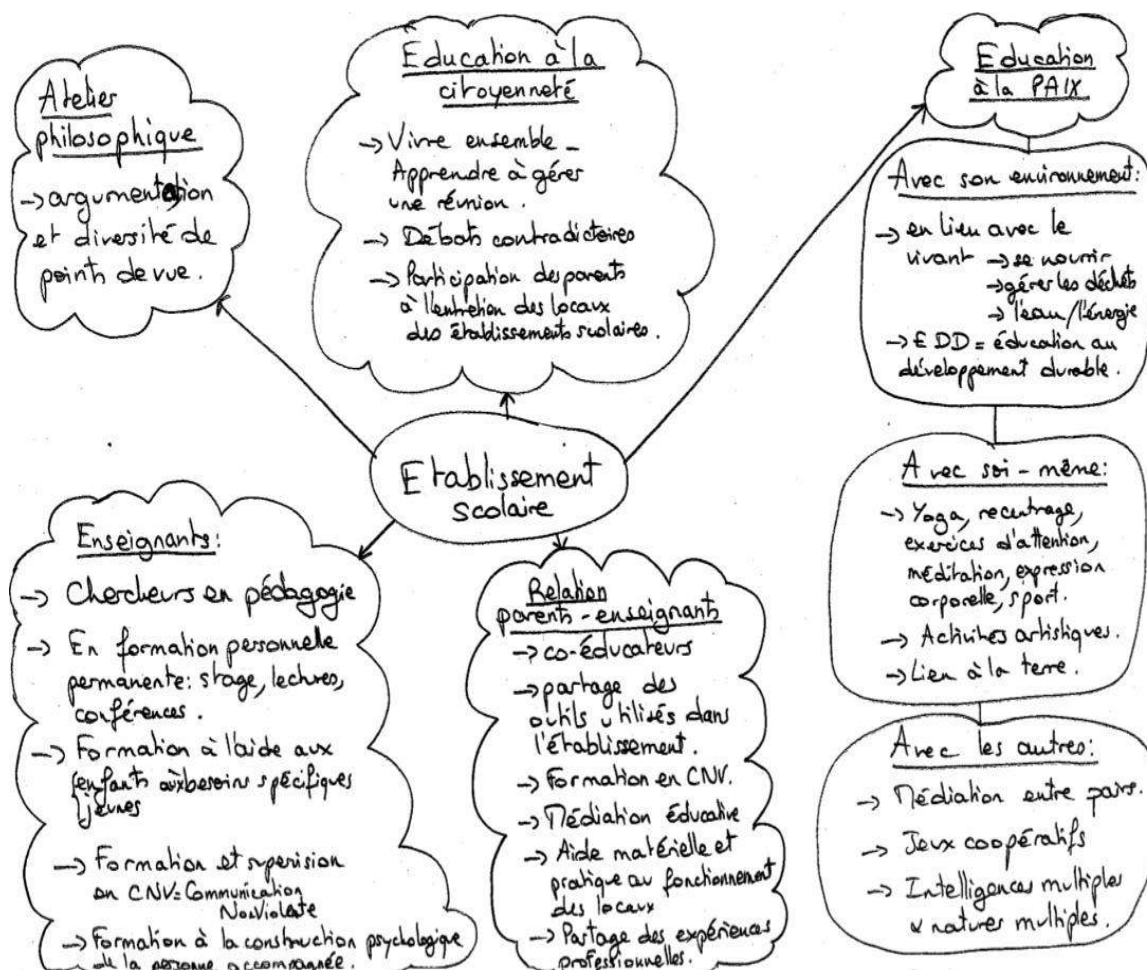 Atelier
philosophique
→ argumentation
et diversité de
points de vue.
Education à la
citoyenneté
→ Vivre ensemble -
Apprendre à gérer
une réunion.
→ Débats contradictoires
→ Participation des parents
à l'entretien des locaux
des établissements scolaires.
Education
à la PAIX
Avec son environnement:
→ en lien avec le
vivant → se nourrir
→ gérer les déchets
→ l'eau/l'énergie
→ EDD = éducation au
développement durable.
Avec soi-même:
→ Yoga, recentrage,
exercices d'attention,
méditation, expression
corporelle, sport.
→ Activités artistiques.
→ Lien à la terre.
Avec les autres:
→ Médiation entre pairs.
→ Jeux coopératifs
→ Intelligences multiples
& natures multiples.
Etablissement
scolaire
Enseignants:
→ Chercheurs en pédagogie
→ En formation personnelle
permanente: stage, lectures,
conférences.
→ Formation à l'aide aux
enfants aux besoins spécifiques
jeunes
→ Formation et supervision
en CNV = Communication
NonViolente
→ Formation à la construction psychologique
de la personne accompagnée.
Relation
parents-enseignants
→ co-éducateurs
→ partage des
outils utilisés dans
l'établissement.
→ Formation en CNV.
→ Médiation éducative
→ Aide matérielle et
pratique au fonctionnement
des locaux
→ Partage des expériences
professionnelles.